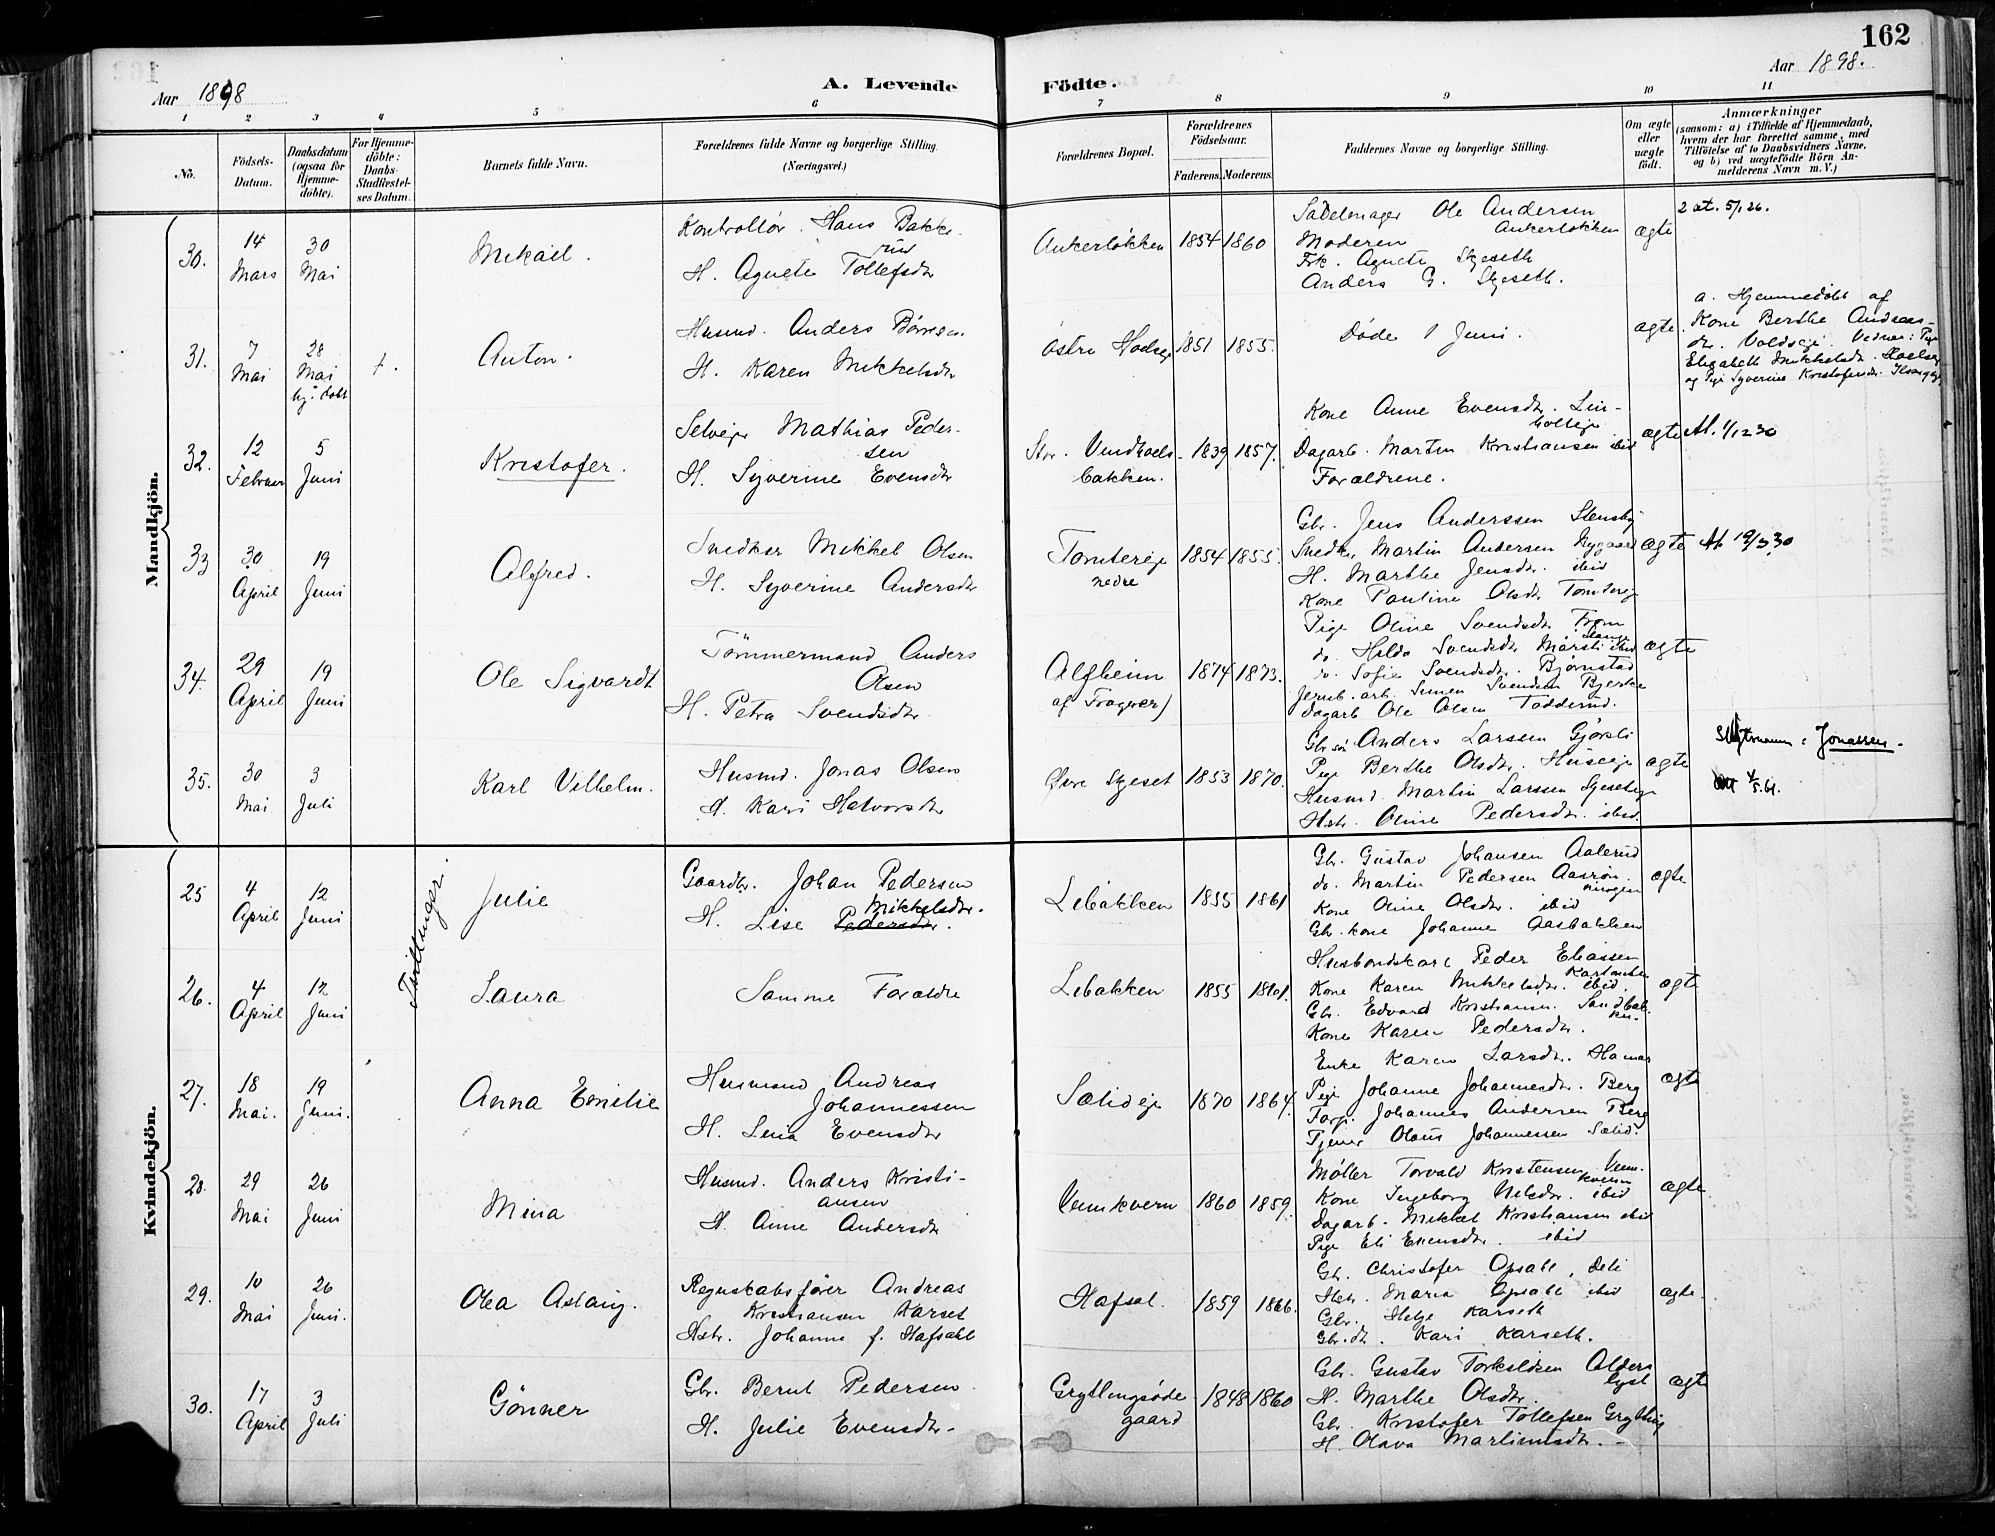 162
Aar 1898
A. Levende
Födte.
Aar 1898.
1 2 3 4 5 6 7 8 9 10 11
No.
Födsels-
Datum.
Daabsdatum
(ogsaa for
Hjemme-
döbte).
For Hjemme-
döbte:
Daabs-
Stadfestel-
ses Datum.
Barnets fulde Navn.
Forældrenes fulde Navne og borgerlige Stilling.
(Næringsvei.)
Forældrenes Bopæl.
Forældrenes
Födselsaar.
Faderens. Moderens.
Faddernes Navne og borgerlige Stilling.
Om ægte
eller
uægte
födt.
Anmærkninger
(saasom: a) i Tilfælde af Hjemmedaab,
hvem der har forrettet samme, med
Tilföielse af to Daabsvidners Navne,
og b) ved uægtefödte Börn An-
melderens Navn m. V.)
Mandkjön.
30.
14
Mars
30
Mai
Mikael.
Kontrollör Hans Bakke-
rud
H. Agnete Tollefsdr
Ankerløkken
1854 1860
Sadelmager Ole Andersen
Ankerløkken
Moderen
Frk. Agnete Skjeseth
Anders G. Skjeseth.
ægte
2 at. 5/1 26.
31.
7
Mai
28
Mai
hj: døbt
+.
Anton.
Husmd. Anders
H. Karen Mikkelsdr
Østre
1851 1855.
Døde 1 Juni.
ægte.
a. Hjemmedøbt af
Kone Berthe Andreas-
dr.
Elisabeth Mikkelsdr.
og Pige Syverine Kristofersdr.
32.
12
Februar
5
Juni
Kristofer.
Selveier Mathias Peder-
sen
H. Syverine Evensdr
bakken.
1839 1857.
Kone Anne Evensdr.
Dagarb. Martin Kristiansen ibid
Forældrene.
ægte
At. 1/12 30
33
30
April
19
Juni
Alfred.
Snedker Mikkel Olsen
H. Syverine Andersdr
Tomtereie
nedre
1854 1855.
Gbr. Jens Anderssen Stensby
Snedk. Martin Andersen Nygaard
H. Marthe Jensdr. ibid
Kone Pauline Olsdr Tomtereie
ægte
34.
29
April
19
Juni
Ole Sigvardt
Tömmermand Anders
Olsen
H. Petra Svendsdr.
Alfheim
af Frogner)
1874 1873.
Pige Oline Svendsdr
do. Hilda Svendsdr
do. Sofie Svendsdr. Bjørnstad
Jernb. arb. Simen Svendsen Bjerke
Dagarb Ole Olsen Todderud.
ægte
35.
30
Mai
3
Juli
Karl Vilhelm.
Husmd. Jonas Olsen
H. Kari Halvorsdr
Øvre Skjeset
1853 1870.
Gbr. søn Anders Larsen
Pige Berthe Olsdr.
Husmd. Martin Larssen
Hstr. Oline Pedersdr. ibid.
ægte
Jonassen.
Kvindekjön.
Tvillinger
25
4
April
12
Juni
Julie
Gaardbr. Johan Pedersen
Mikkelsdr.
H. Lise Pedersdr.
Libakken
1855 1861
Gbr. Gustav Johansen Aalerud
do. Martin Pedersen
Kone Oline Olsdr. ibid
Gbr. kone Johanne Aasbakken
ægte
26.
4
April
12
Juni
Laura
Samme Forældre
Libakken
1855 1861.
Husbondskarl Peder Eliassen
Kone Karen Mikkelsdr. ibid.
Gbr. Edvard Kristiansen. Sandbak-
ken.
Kone Karen Pedersdr.
ægte
27.
18
Mai.
19
Juni.
Anna Emilie
Husmand Andreas
Johannessen
H. Lina Evensdr
Sælideje
1870 1864.
Enke Karen Larsdr. Hamar
Pige Johanne Johannesdr. Berg
Forp. Johannes Andersen Berg
Tjener Olaus Johannessen Sælid.
ægte
28.
29
Mai
26
Juni
Mina
Husmd. Anders Kristi-
ansen
H. Anne Andersdr
Vemkvern
1860 1859.
Møller Torvald Kristensen Vem-
kvern
Kone Ingeborg Nilsdr. ibid
Dagarb. Mikkel Kristiansen ibid
Pige Eli Evensdr. ibid
ægte
29.
10
Mai
26
Juni.
Olea Aslaug.
Regnskabsfører Andreas
Kristiansen Karset
Hstr. Johanne f. Hafsahl
Hafsal.
1859 1866.
Gbr. Christofer Opsahl, Deli
Hstr. Maria Opsahl ibid
Gbr. Helge Karseth
Gbr. dr. Kari Karseth.
ægte.
30.
17
April
3
Juli
Gönner
Gbr. Bernt Pedersen
H. Julie Evensdr.
Grytlingsøde-
gaard
1848 1860
Gbr. Gustav Torkeldsen Alders
lyst
H. Marthe Olsdr.
Gbr. Kristofer Tollefsen Grytling
H. Olava Martinusdr.
ægte